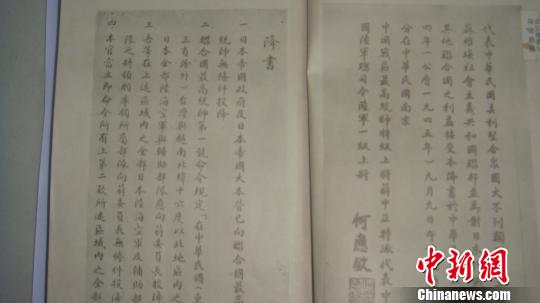 代表中華民國美利堅合眾國大不列顛
蘇維埃社會主義共和國聯邦並為對日
其他聯合國之利益接受本降書於中華
四年(公曆一九四五年)九月九日午
分在中華民國南京
中國戰區最高統帥特級上將蔣中正特派代表中
國陸軍總司令陸軍一級上將
何應欽
降書
一日本帝國政府及日本帝國大本營已向聯合國最高
統帥無條件投降
二聯合國最高統帥第一號命令規定「在中華民國(東
三省除外)台灣與越南北緯十六度以北地區內之
日本全部陸海空軍與輔助部隊應向蔣委員長投降
三吾等在上述區域內之全部日本陸海空軍及輔助部
隊之將領願率領所屬部隊向蔣委員長無條件投降
四本官當立即命令所有上第二款所述區域內之全部
中新網
www.chinanews.com